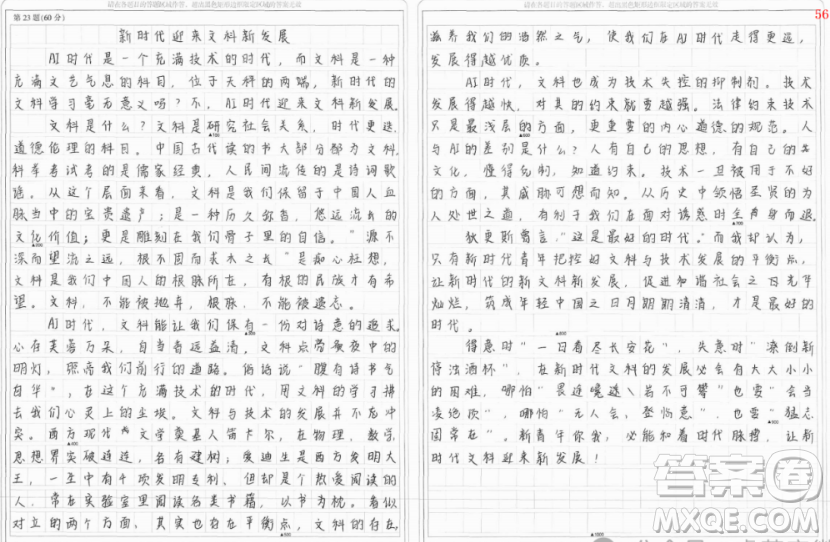 请在各题目的答题区域内作答，超出黑色矩形边框限定区域的答案无效
第23题(60分)
新时代迎来文科新发展
AI时代是一个充满技术的时代，而文科是一种
充满文艺气息的科目，位于天秤的两端，新时代的
文科学习毫无意义吗？不，AI时代迎来文科新发展。
文科是什么？文科是研究社会关系，时代更迭，
道德伦理的科目。中国古代读的书大部分都为文科，
科举考试考的是儒家经典，人民间流传的是诗词歌
谣。从这个层面来看，文科是我们保留于中国人血
脉当中的宝贵遗产；是一种历久弥香，悠远流长的
文化价值；更是雕刻在我们骨子里的自信。“源不
深而望流之远，根不固而求木之长”是痴心枉想，
文科是我们中国人的根脉所在，有根的民族才有希
望。文科，不能被抛弃，根脉，不能被遗忘。
AI时代，文科能让我们保有一份对诗意的追求。
心在芙蓉万朵，自当香远益清。文科点亮寒夜中的
明灯，照亮我们前行的道路。俗话说“腹有诗书气
自华”，在这个充满技术的时代，用文科的学习拂
去我们心灵上的尘埃。文科与技术的发展并不龙冲
突。西方现代哲学奠基人笛卡尔，在物理，数学，
思想界突破连连，各有建树；爱迪生是西方发明大
王，一生中有千项发明专利，但却是个热爱阅读的
人，常在实验室里阅读名美书籍，以书为枕。看似
对立的两个方面，其实也存在平衡点，文科的存在，
请在各题目的答题区域内作答，超出黑色矩形边框限定区域的答案无效
56
滋养我们的浩然之气，使我们在AI时代走得更远，
发展得越优质。
AI时代，文科也成为技术失控的抑制剂。技术
发展得越快，对其的约束就要越强。法律约束技术
只是最浅层的方面，更重要的内心道德的规范。人
与AI的差别是什么？人有自己的思想，有自己的
文化，懂得克制，知道约束。技术一旦被用于不好
的方面，其威胁可想而知。从历史中领悟圣贤的为
人处世之道，有利于我们在面对诱惑时全身而退。
狄更斯曾言，“这是最好的时代。”而我却认为，
只有新时代青年把控好文科与技术的平衡点，
让新时代的新文科新发展，促进和谐社会之日光华
灿烂，筑成年轻中国之日月期期清清，才是最好的
时代。
得意时“一日看尽长安花”，失意时“潦倒新
停浊酒杯”，在新时代文科的发展必会有大大小小
的困难，哪怕“畏途巉岩不可攀”也要“会当
凌绝顶”，哪怕“无人会，登临意”，也要“猛志
固常在”。新青年你我，必能和着时代脉搏，让新
时代文科迎来新发展！
答案卷
MXQE.COM